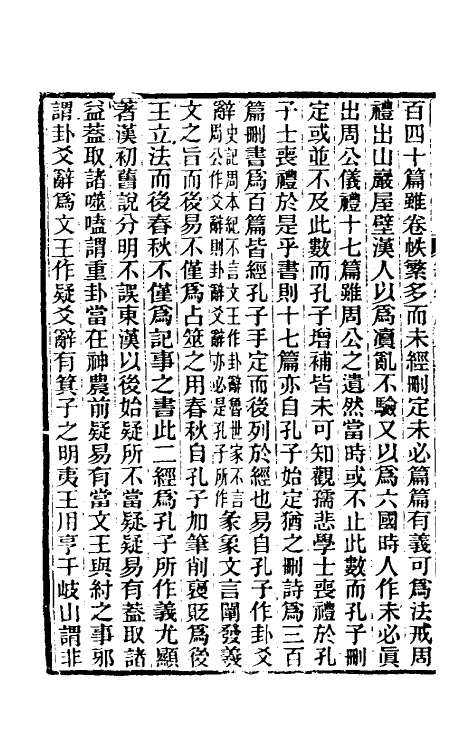 百四十篇雖卷帙繁多而未經刪定未必篇篇有義可爲法戒周
禮出山巖屋壁漢人以爲瀆亂不驗又以爲六國時人作未必眞
出周公儀禮十七篇雖周公之遺然當時或不止此數而孔子刪
定或並不及此數而孔子增補皆未可知觀孺悲學士喪禮於孔
子士喪禮於是乎書則十七篇亦自孔子始定猶之刪詩爲三百
篇刪書爲百篇皆經孔子手定而後列於經也易自孔子作卦爻
辭史記周本紀不言文王作卦辭魯世家不言周公作爻辭則卦辭爻辭亦必是孔子所作彖象文言闡發義
文之旨而後易不僅爲占筮之用春秋自孔子加筆削襃貶爲後
王立法而後春秋不僅爲記事之書此二經爲孔子所作義尤顯
著漢初舊說分明不誤東漢以後始疑所不當疑疑易有蓋取諸
益蓋取諸噬嗑謂重卦當在神農前疑易有當文王與紂之事邪
謂卦爻辭爲文王作疑爻辭有箕子之明夷王用亨于岐山謂非